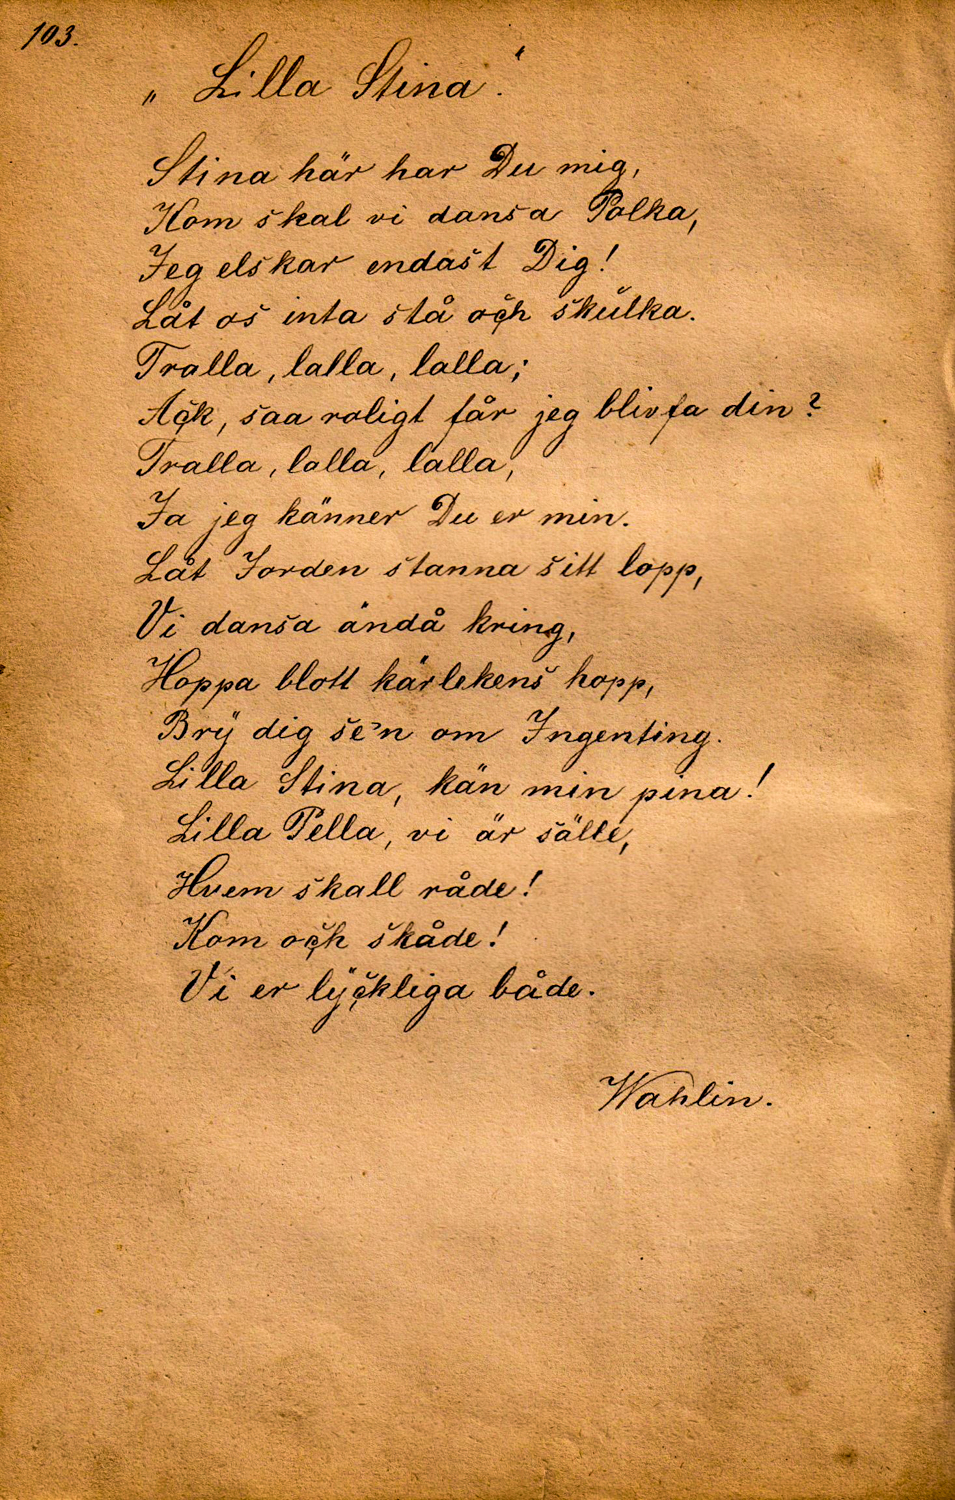 103.
„Lilla Stina“.
Stina här har Du mig,
Kom skal vi dansa Polka,
Jeg elskar endast Dig!
Låt os inta stå och skülka.
Tralla, lalla, lalla;
Ack, saa roligt får jeg blivfa din?
Tralla, lalla, lalla,
Ja jeg känner Du er min.
Låt Jorden stanna sitt lopp,
Vi dansa ändå kring,
Hoppa blott kärlekens hopp,
Brÿ dig se'n om Ingenting.
Lilla Stina, kän min pina!
Lilla Pella, vi är sälle,
Hvem skall råde!
Kom och skåde!
Vi er lÿckliga både.
Wahlin.